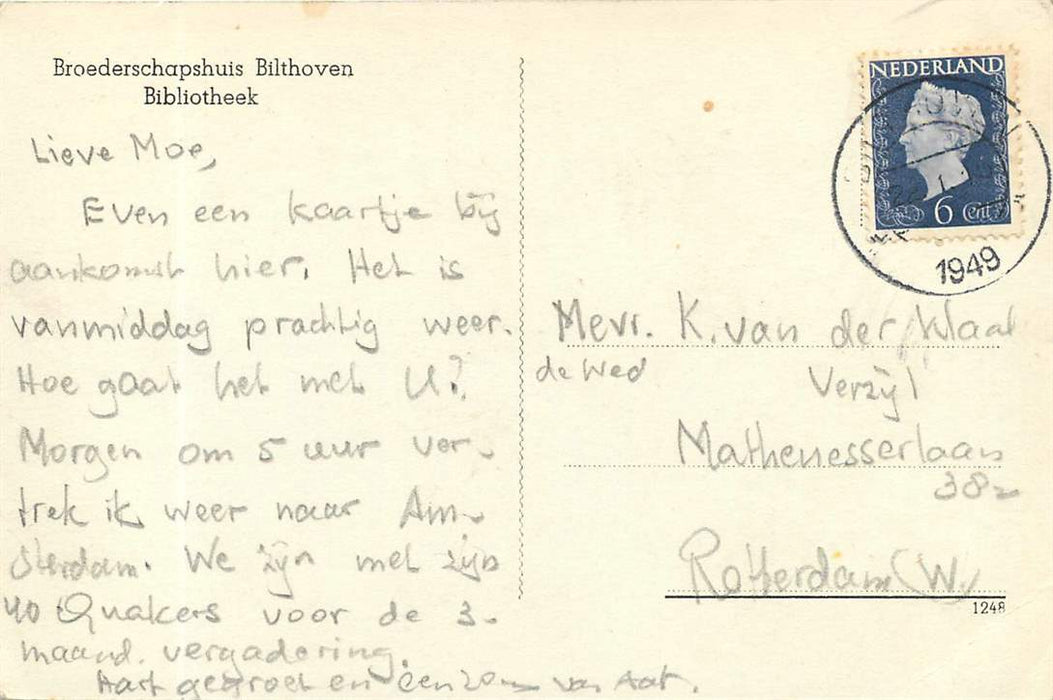 Broederschapshuis Bilthoven
Bibliotheek
Lieve Moe,
Even een kaartje bij
aankomst hier. Het is
vanmiddag prachtig weer.
Hoe gaat het met U?
Morgen om 5 uur ver-
trek ik weer naar Am-
sterdam. We zijn met zijn
40 Quakers voor de 3-
maand. vergadering.
Hart. gegroet en een zoen van Aat.
NEDERLAND
6 Cent
1949
Mevr. K. van der Waal
de Wed
Verzijl
Mathenesserlaan
382
Rotterdam (W.)
1248